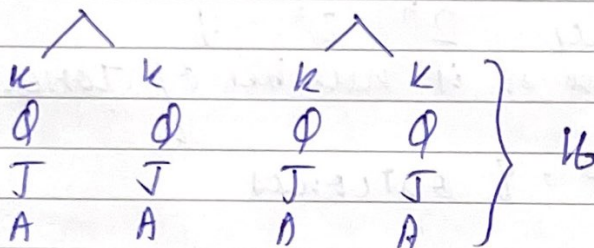 K K K K
Q Q Q Q
J J J J
A A A A
16